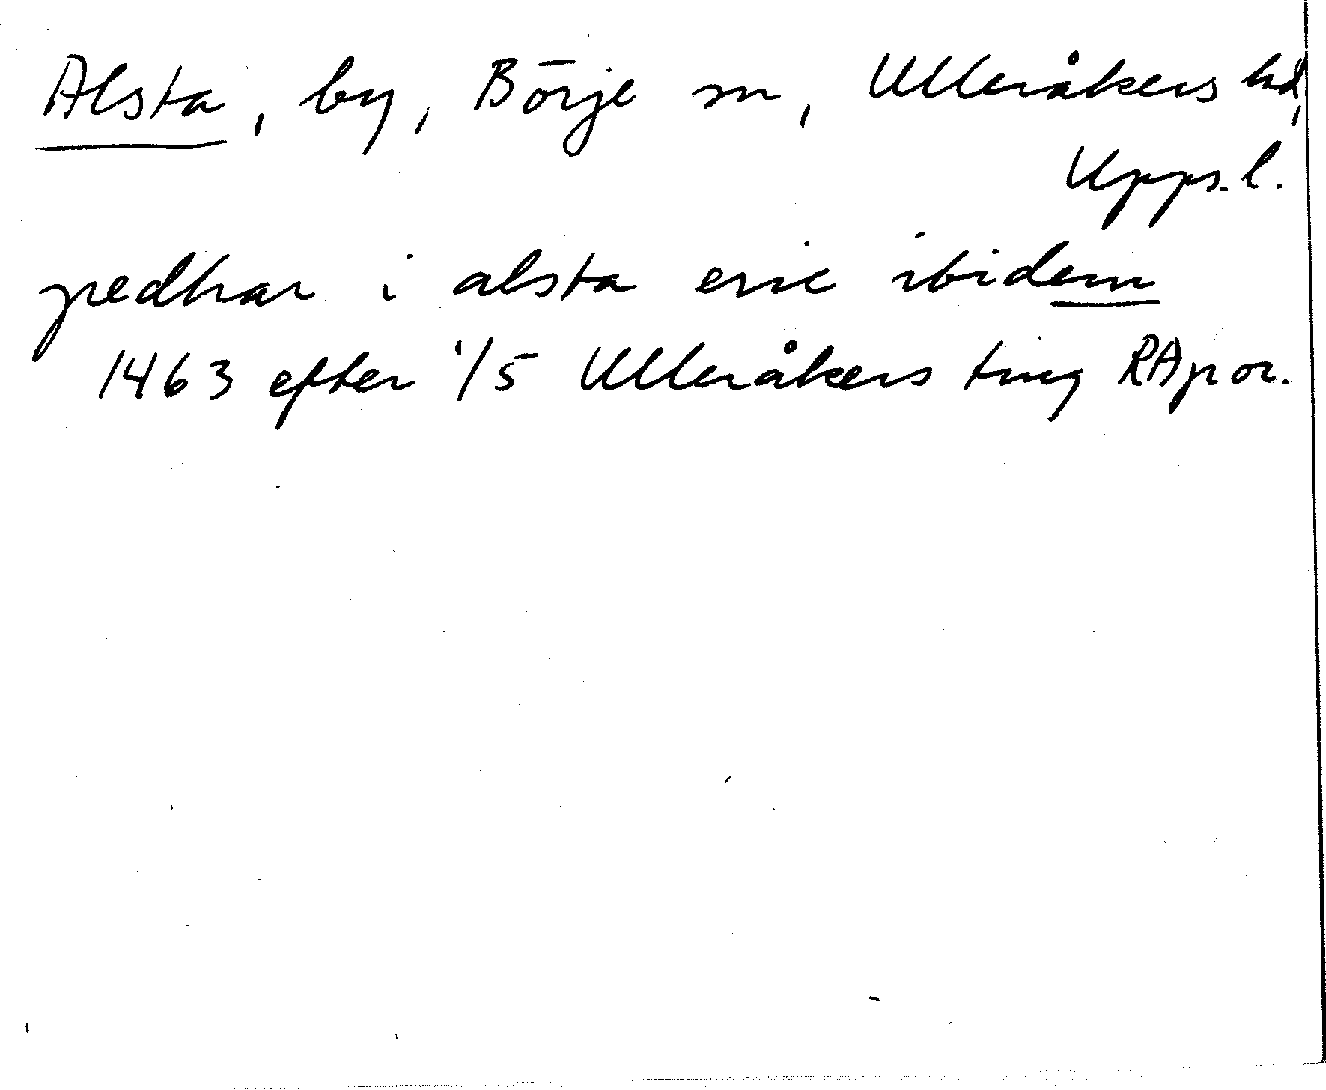 Alsta, by, Börje sn, Ulleråkers hd,
Upps. l.
pedhar i alsta eric ibidem
1463 efter 1/5 Ulleråkers ting RApor.